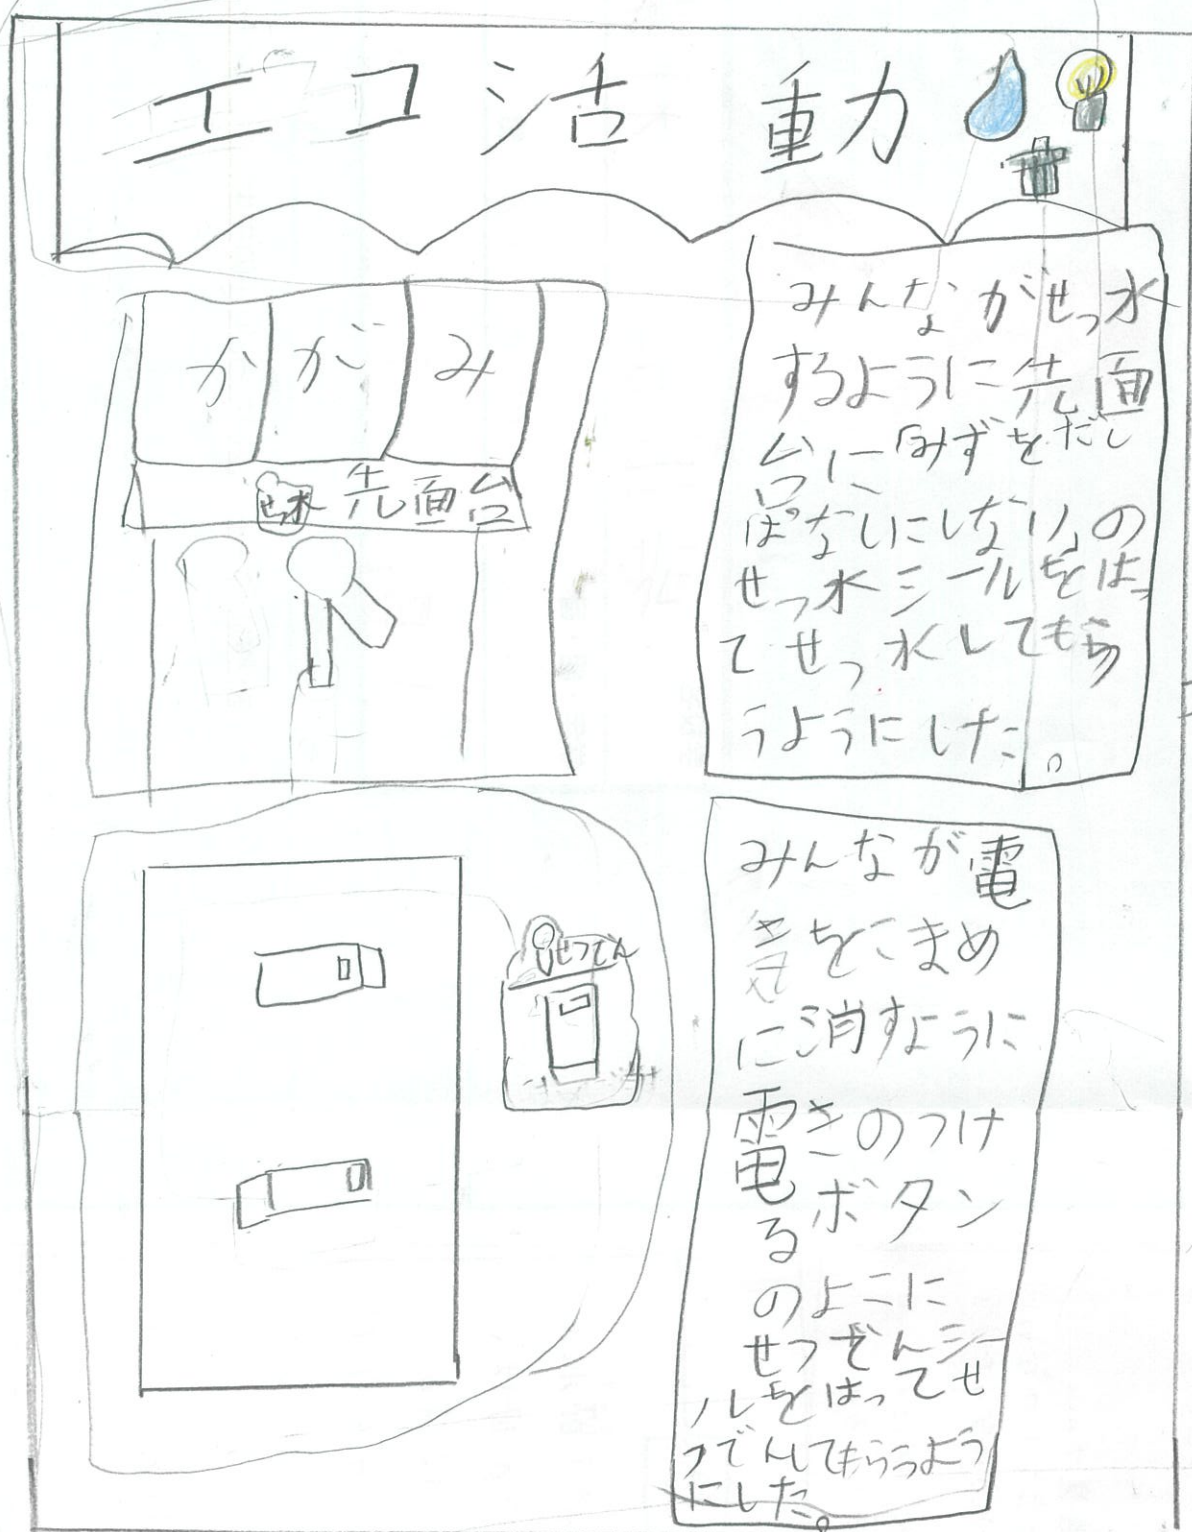 エコ活動
みんながせっ水
するように先面
台に「みずをだし
ぱなしにしない」の
せっ水シールをはっ
てせっ水してもら
うようにした。
かがみ
せっ水
先面台
みんなが電
気をこまめ
に消すように
電きのつけ
るボタン
のよこに
せつでんシー
ルをはってせ
つでんしてもらうよう
にした。
せつでん